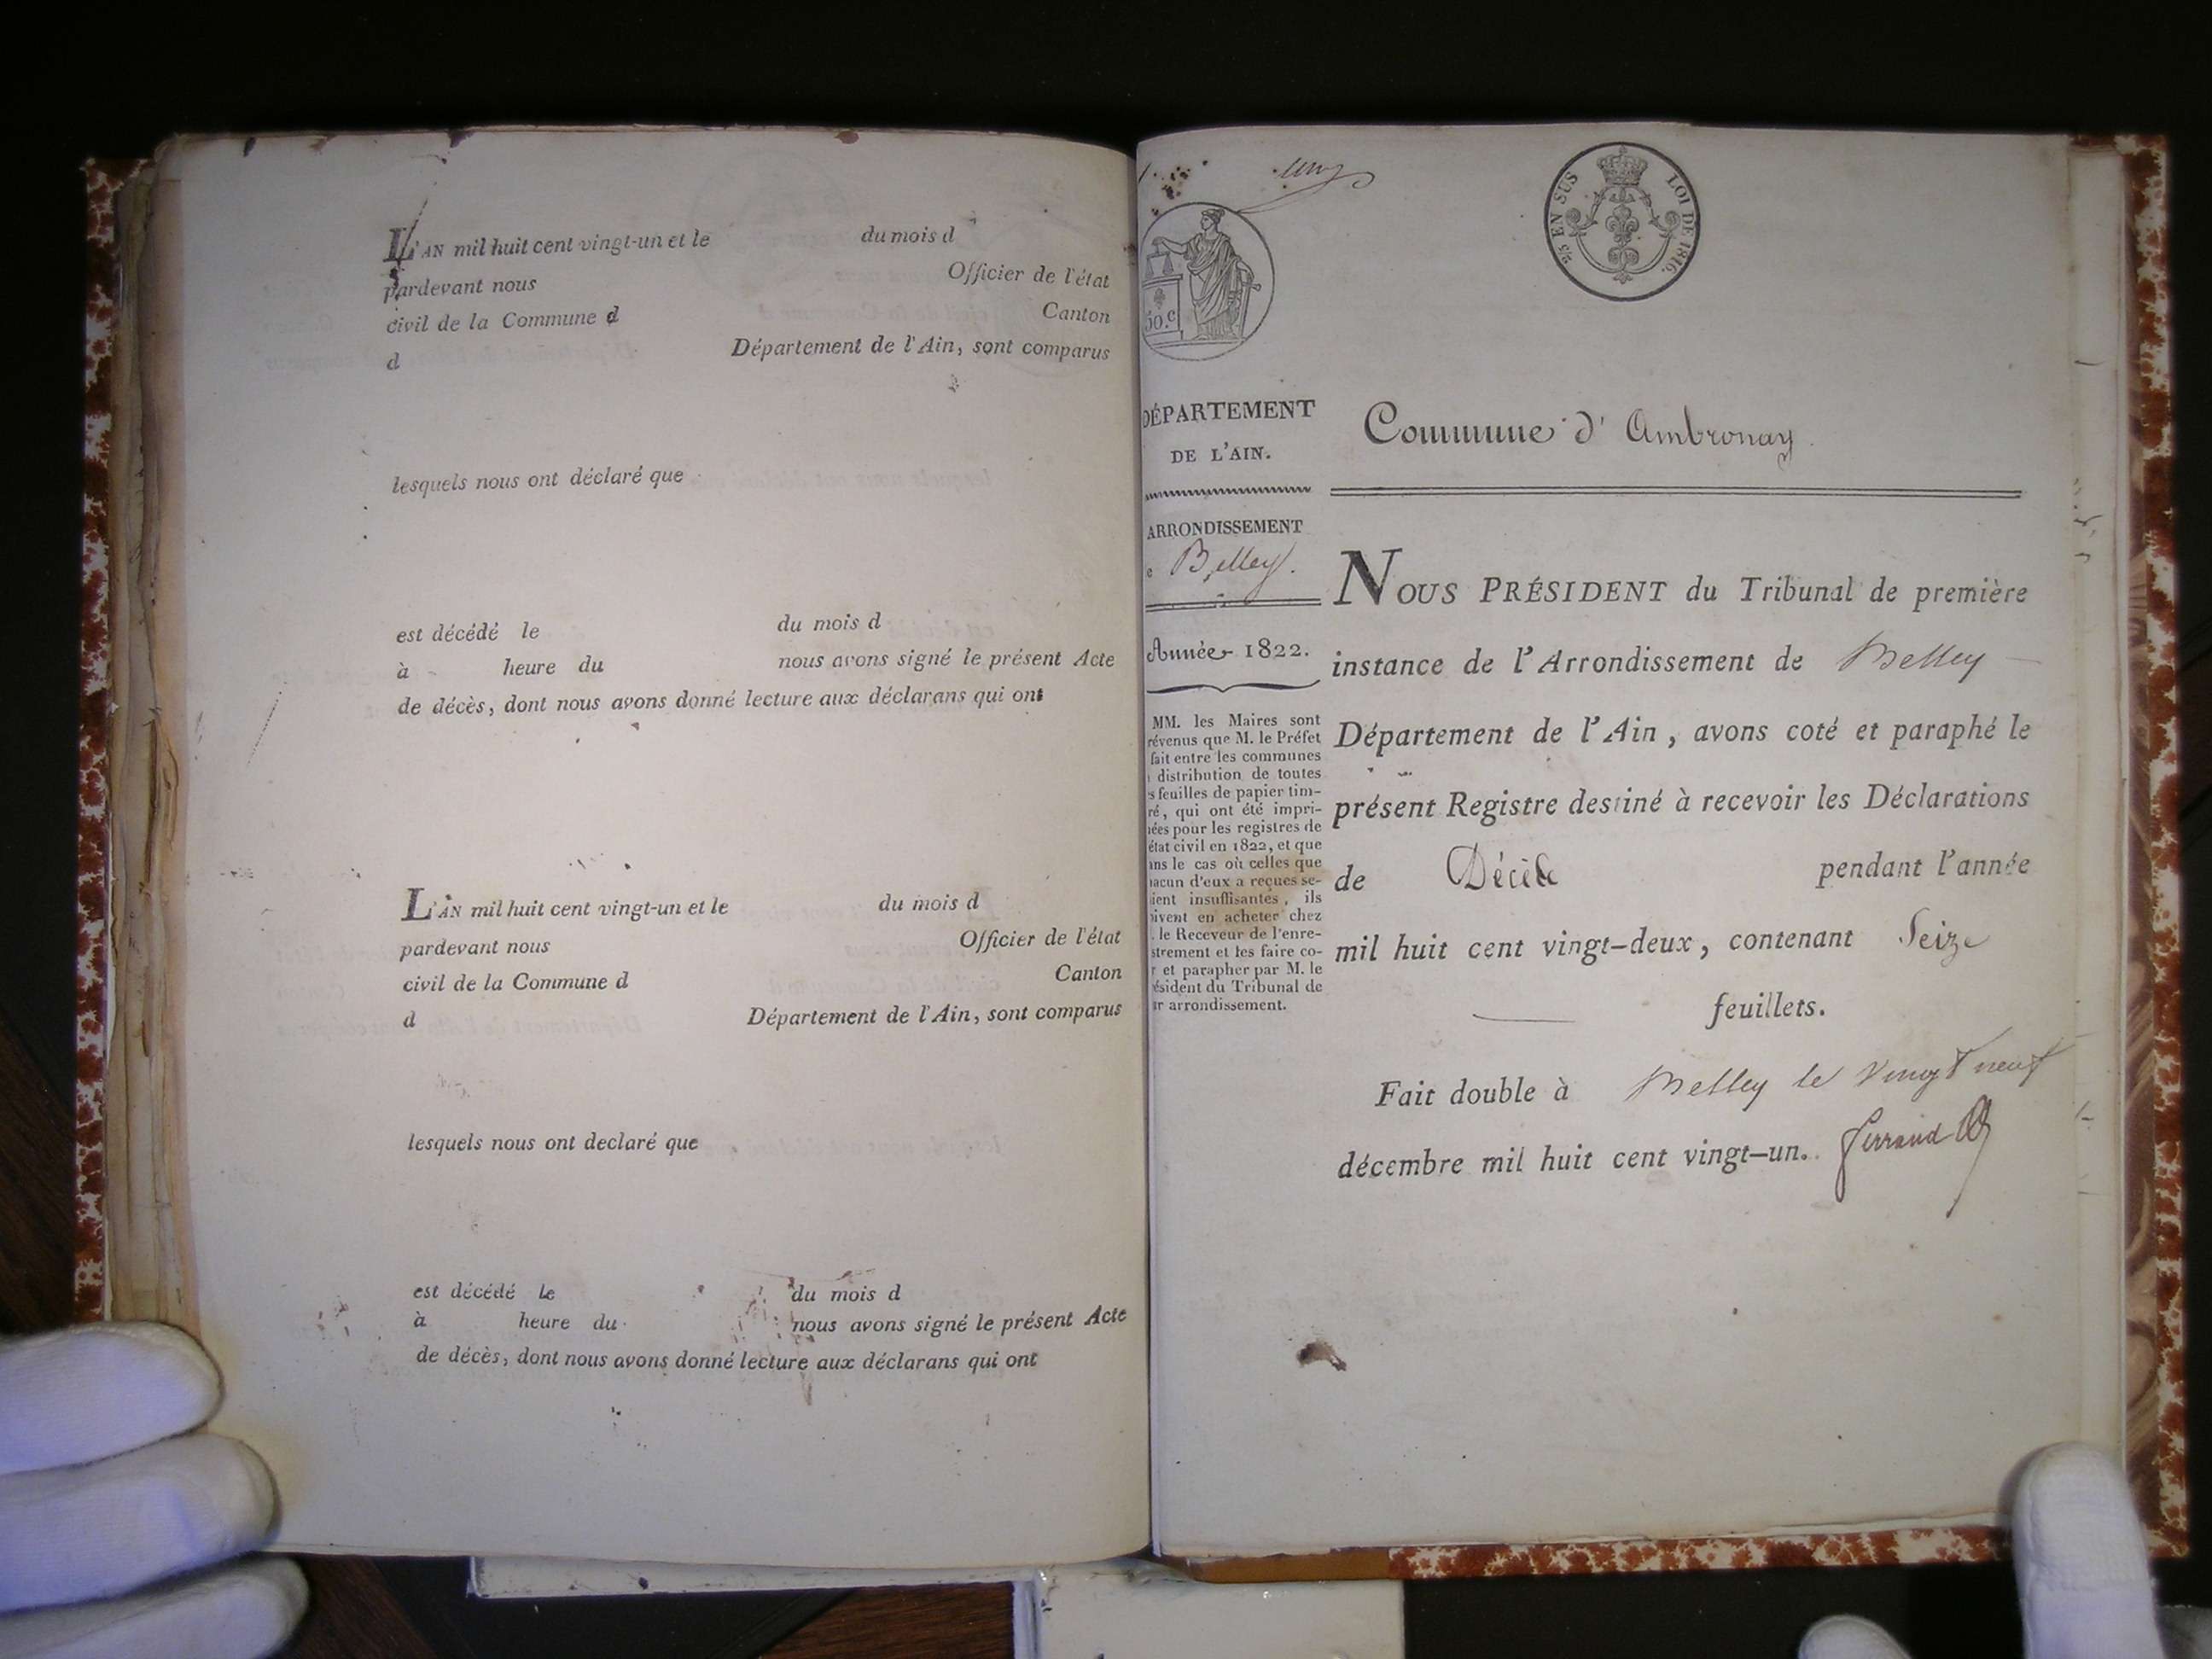 L'AN mil huit cent vingt-un et le du mois d
pardevant nous Officier de l'état
civil de la Commune d Canton
d Département de l'Ain, sont comparus
lesquels nous ont déclaré que
est décédé le du mois d
à heure du nous avons signé le présent Acte
de décès, dont nous avons donné lecture aux déclarans qui ont
L'AN mil huit cent vingt-un et le du mois d
pardevant nous Officier de l'état
civil de la Commune d Canton
d Département de l'Ain, sont comparus
lesquels nous ont declaré que
est décédé le du mois d
à heure du nous avons signé le présent Acte
de décès, dont nous avons donné lecture aux déclarans qui ont
2/5 EN SUS LOI DE 1816.
50.c
DÉPARTEMENT
DE L'AIN.
ARRONDISSEMENT
e Belley.
Année 1822.
MM. les Maires sont
révenus que M. le Préfet
fait entre les communes
distribution de toutes
s feuilles de papier tim-
ré, qui ont été impri-
ées pour les registres de
état civil en 1822, et que
ans le cas où celles que
hacun d'eux a reçues se-
ient insuffisantes, ils
oivent en acheter chez
. le Receveur de l'enre-
strement et les faire co-
r et parapher par M. le
ésident du Tribunal de
ur arrondissement.
Commune d'Ambronay.
NOUS PRÉSIDENT du Tribunal de première
instance de l'Arrondissement de Belley
Département de l'Ain, avons coté et paraphé le
présent Registre destiné à recevoir les Déclarations
de Décès pendant l'année
mil huit cent vingt-deux, contenant Seize
feuillets.
Fait double à Belley le vingt neuf
décembre mil huit cent vingt-un. Ferrand